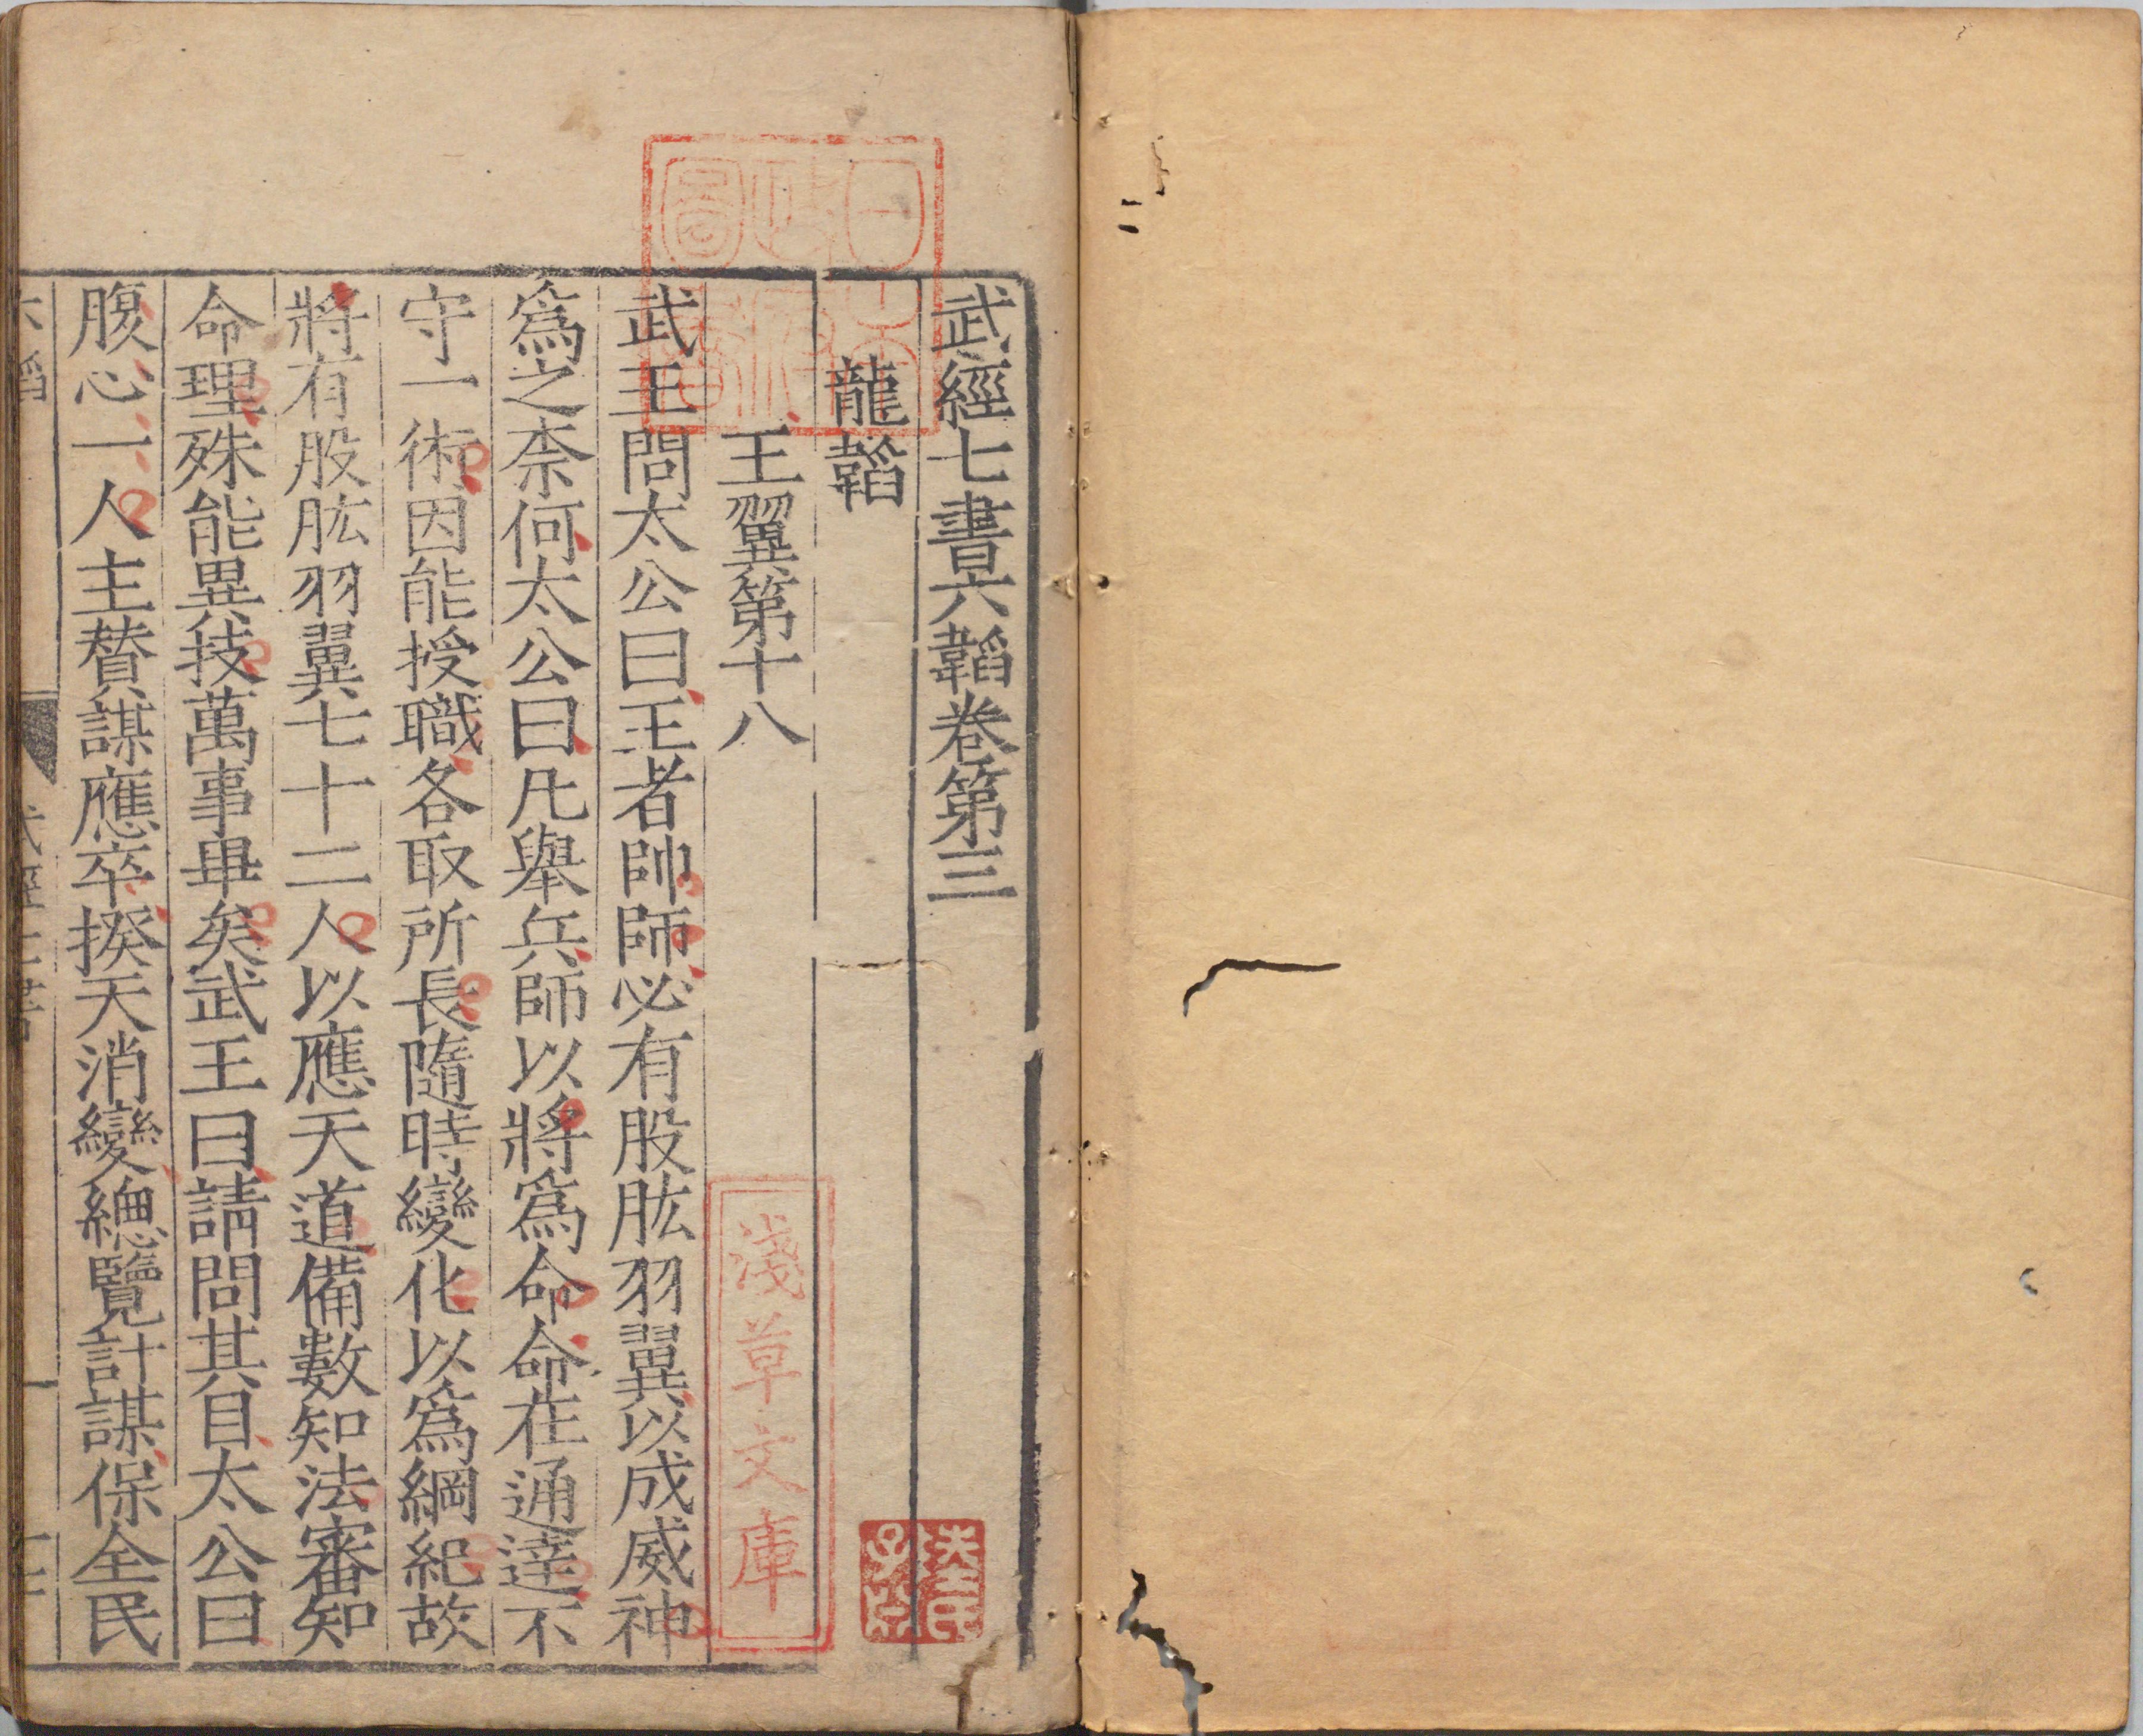 武經七書六韜卷第三
龍韜
王翼第十八
武王問太公曰王者帥師必有股肱羽翼以成威神
爲之柰何太公曰凡舉兵師以將爲命命在通達不
守一術因能授職各取所長隨時變化以爲綱紀故
將有股肱羽翼七十二人以應天道備數知法審知
命理殊能異技萬事畢矣武王曰請問其目太公曰
腹心一人主賛謀應卒揆天消變總覽計謀保全民
六韜
淺草文庫